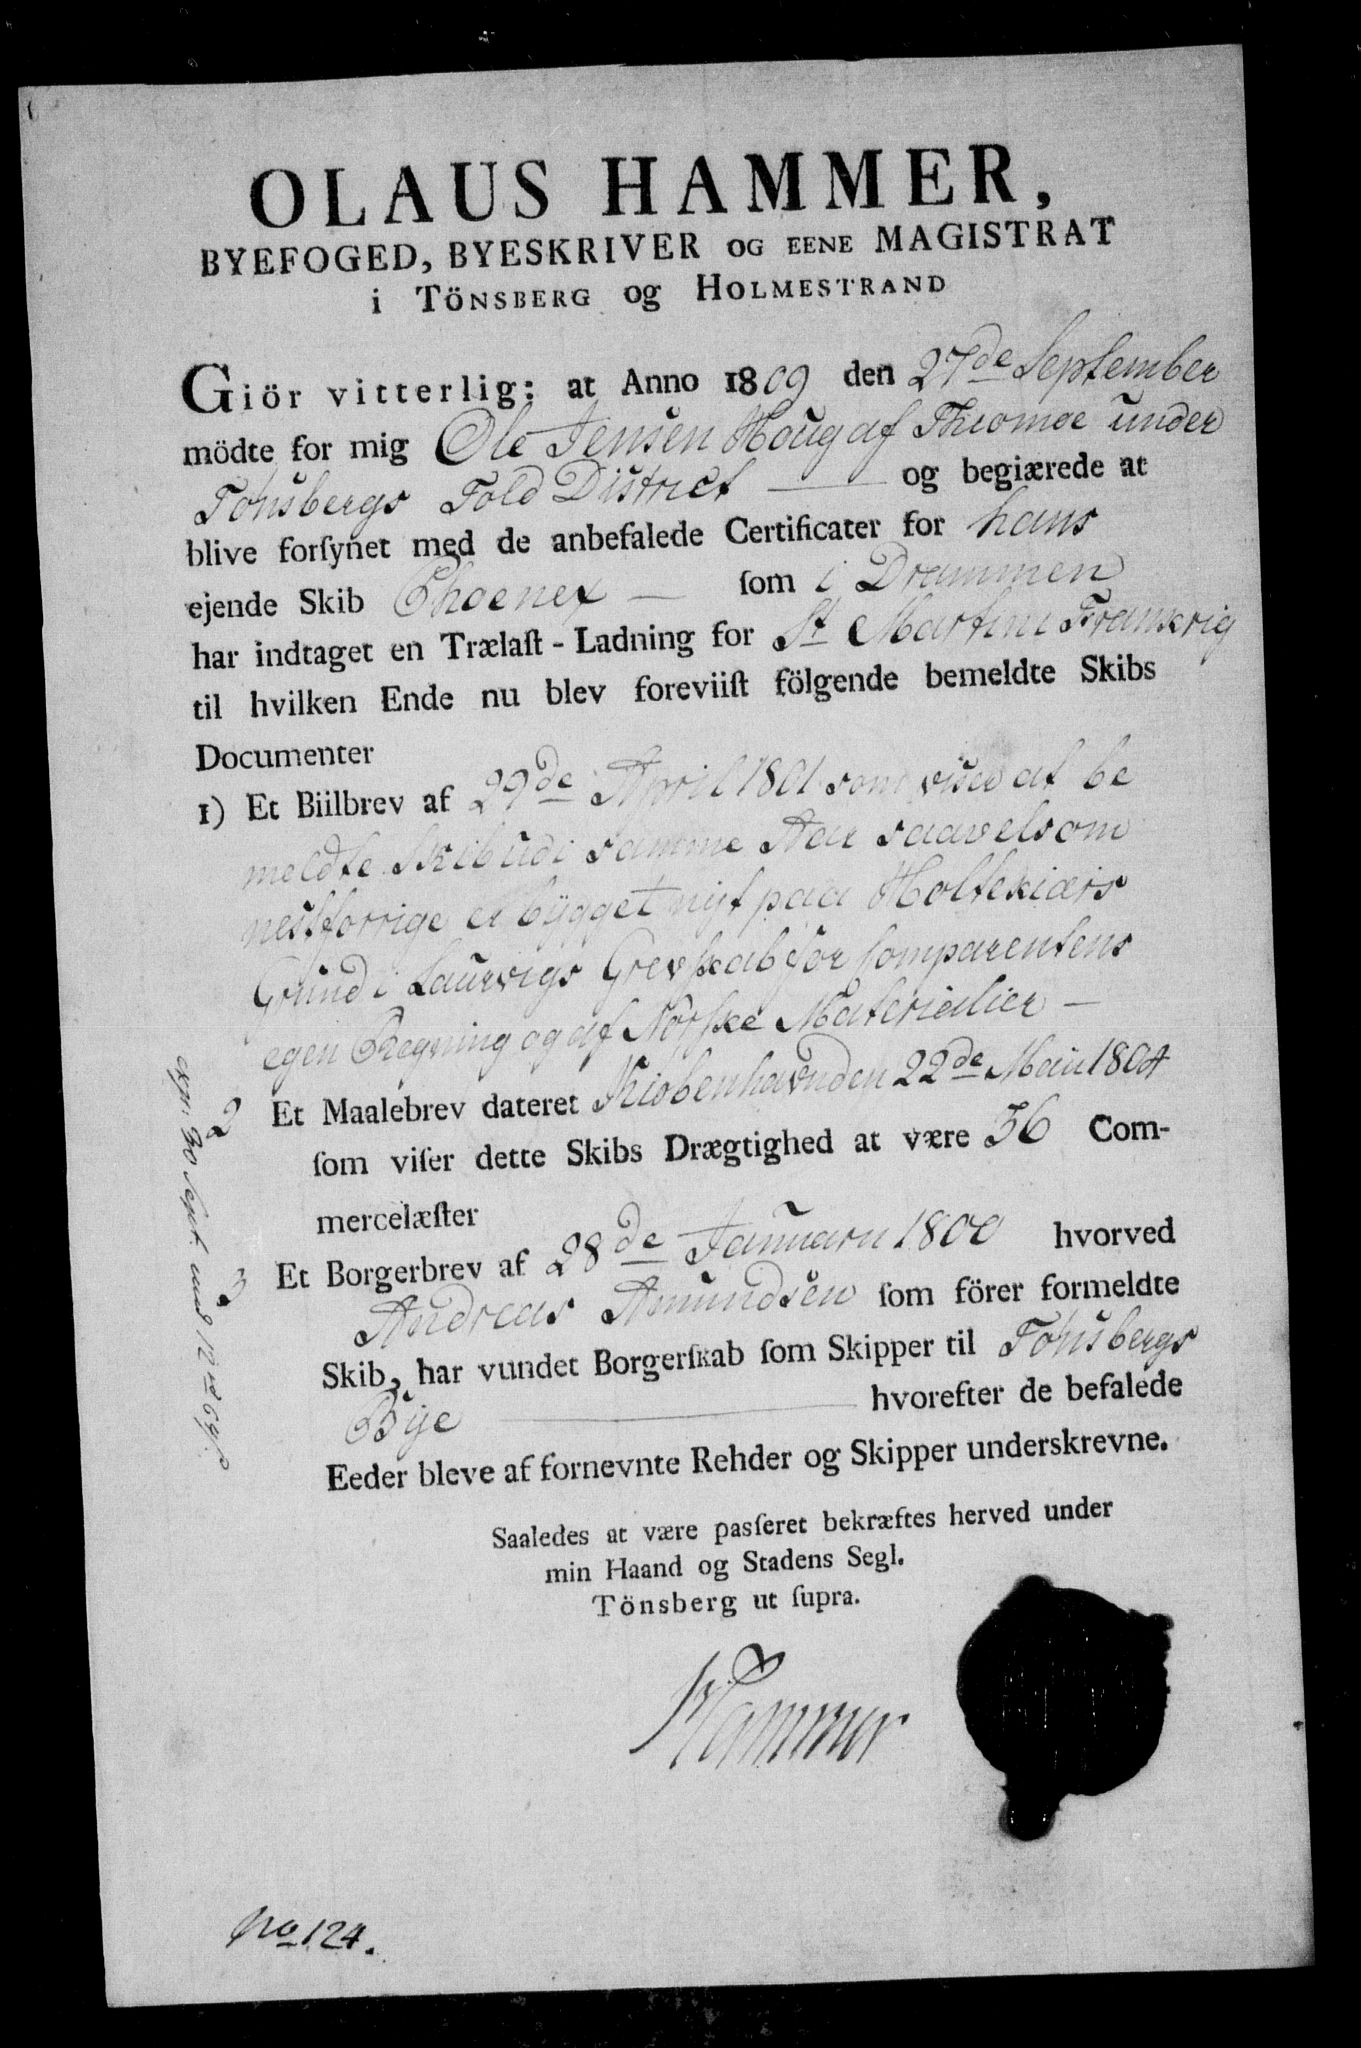 OLAUS HAMMER,
BYEFOGED, BYESKRIVER OG EENE MAGISTRAT
i TÖNSBERG og HOLMESTRAND
Giör vitterlig: at Anno 1809 den 27de September
mödte for mig Ole Jensen Houg af Thiomöe under
Tönsbergs Told District — og begiærede at
blive forſynet med de anbefalede Certificater for hans
ejende Skib Phoenex — ſom i Drammen
har indtaget en Trælaſt-Ladning for St Martin i Frankrig
til hvilken Ende nu blev foreviiſt fölgende bemeldte Skibs
Documenter
1) Et Biilbrev af 29de April 1801 som viser at be
meldte Skib udi samme Aar saavelsom
nestforrige er bygget nyt paa Holtekiærs
Grund i Laurvigs Grevskab for Comparentens
egen Regning og af Norske Materialier —
2 Et Maalebrev dateret Kiobenhavn den 22de Maii 1804
ſom viſer dette Skibs Drægtighed at være 56 Com-
mercelæſter
3 Et Borgerbrev af 28de Januarii 1800 hvorved
Andreas Amundsen ſom förer formeldte
Skib, har vundet Borgerſkab ſom Skipper til Tönsbergs
Bye — hvorefter de befalede
Eeder bleve af fornevnte Rehder og Skipper underskrevne.
Saaledes at være paſſeret bekræftes herved under
min Haand og Stadens Segl.
Tönsberg ut ſupra.
Hammer
No 124.
expr. 30 Sept. med